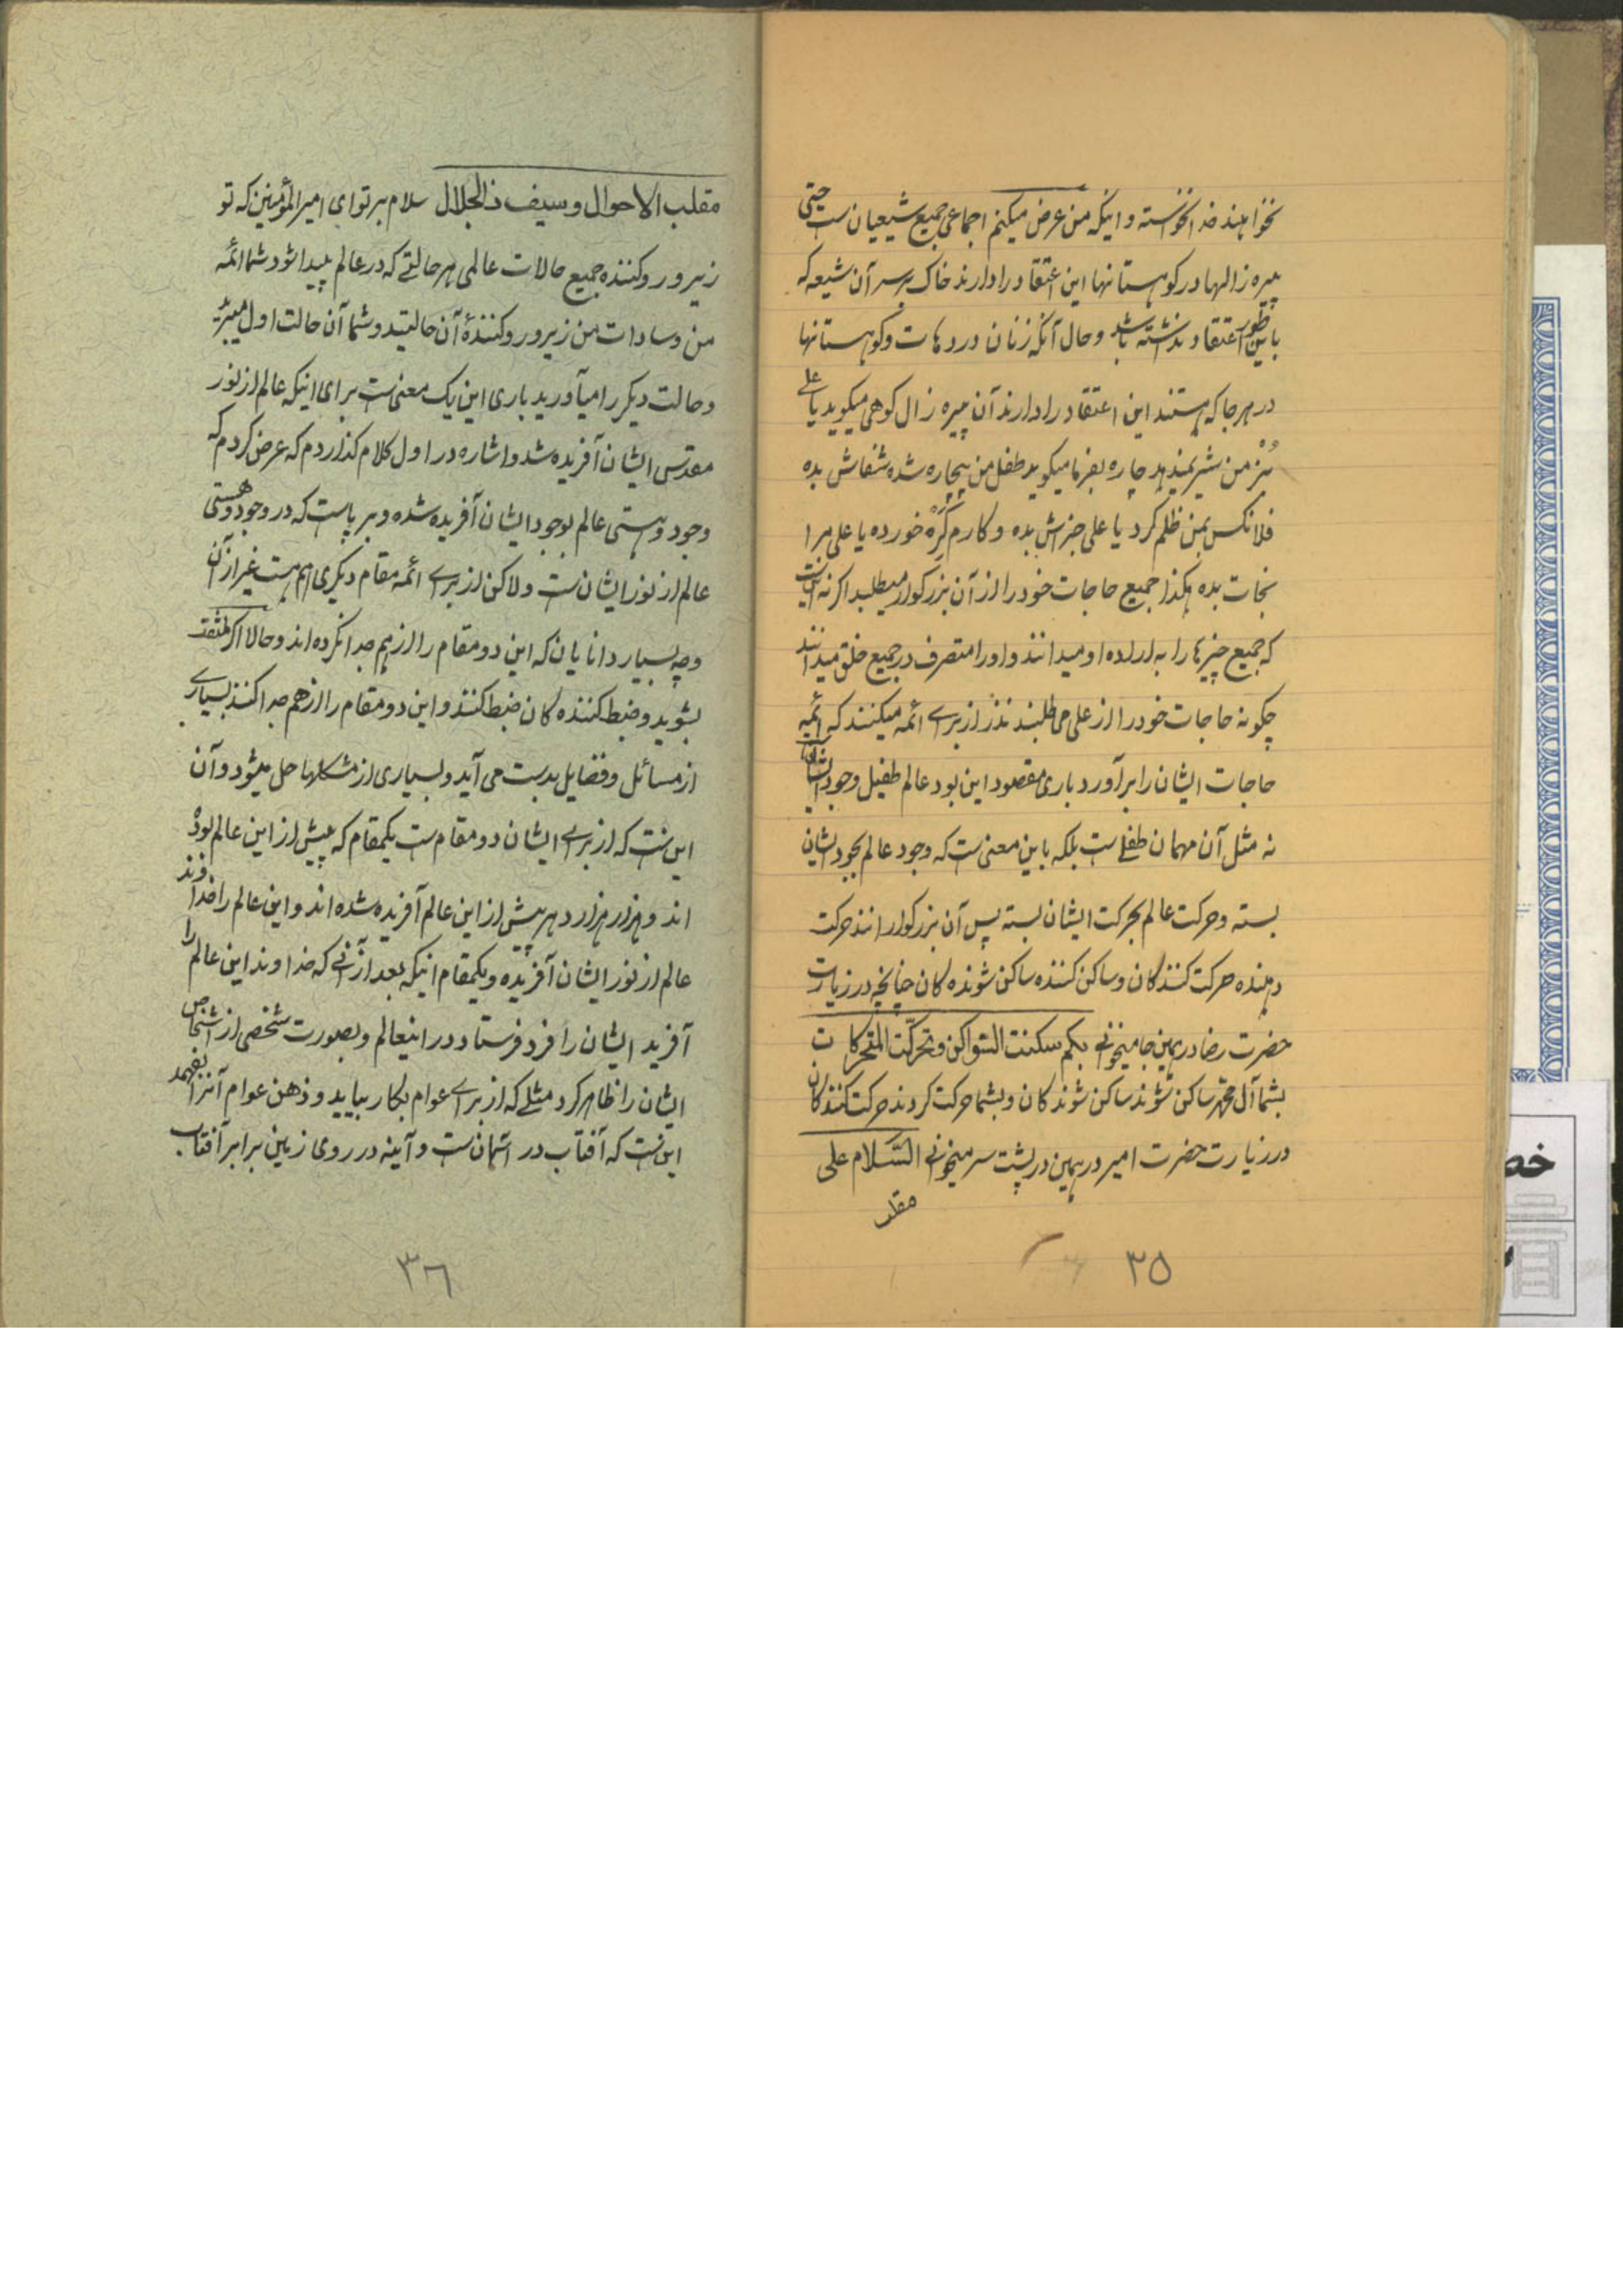 نخواهند خدا نخواسته و اینکه من عرض میکنم اجماعی جمیع شیعیان ست حتی
پیره زالها در کوهستانها این اعتقاد را دارند خاک بر سر آن شیعه که
باینطور اعتقاد نداشته باشد و حال آنکه زنان در دهات و کوهستانها
در هر جا که هستند این اعتقاد را دارند آن پیره زال کوهی میگوید یا علی
بُز من شیر نمیدهد چاره بفرما میگوید طفل من بیچاره شده شفاش بده
فلانکس بمن ظلم کرد یا علی جزش بده و کارم گره خورده یا علی مرا
نجات بده هکذا جمیع حاجات خود را از آن بزرگوار میطلبد اگر نه اینست
که جمیع چیزها را به اراده او میدانند و او را متصرف در جمیع خلق میدانند
چگونه حاجات خود را از علی می طلبند نذر از برای ائمه میکنند که ائمه
حاجات ایشان را برآورد باری مقصود این بود عالم طفیل وجود ایشان
نه مثل آن مهمان طفیلی ست بلکه باین معنی ست که وجود عالم بوجود ایشان
بسته و حرکت عالم بحرکت ایشان بسته پس آن بزرگوارانند حرکت
دهنده حرکت کنندگان و ساکن کننده ساکن شونده کان چنانچه در زیارت
حضرت رضا در همین جا میخوانی بکم سکنت السّواکن و تحرّکت المتحرکات
بشما آل محمّد ساکن شوند ساکن شوندکان و بشما حرکت کردند حرکت کنندکان
در زیارت حضرت امیر در همین در پشت سر میخوانی السّلام علی
مقلب
٣٥
مقلب الاحوال وسیف ذالجلال سلام بر تو ای امیرالمؤمنین که تو
زیر و رو کننده جمیع حالات عالمی هر حالتی که در عالم پیدا شود شما ائمّه
من و سادات من زیر و رو کنندهٔ آن حالتید و شما آن حالت اول میبرید
و حالت دیگر را میآورید باری این یک معنی ست برای اینکه عالم از نور
مقدس ایشان آفریده شد و اشاره در اول کلام گذاردم که عرض کردم که
وجود و هستی عالم بوجود ایشان آفریده شده و بر پاست که در وجود و هستی
عالم از نور ایشان ست ولاکن از برای ائمه مقام دیگری هم هست غیر از آن
و چه بسیار دانایان که این دو مقام را از هم جدا نکرده اند و حالا اگر ملتفت
بشوید و ضبط کننده کان ضبط کنند و این دو مقام را از هم جدا کنند بسیاری
از مسائل و فضایل بدست می آید و بسیاری از مشکلها حل میشود و آن
این ست که از برای ایشان دو مقام ست یکمقام که پیش از این عالم بوده
اند و هزار هزار دهر پیش از این عالم آفریده شده اند و این عالم را خداوند
عالم از نور ایشان آفریده و یکمقام اینکه بعد از آنی که خداوند این عالم را
آفرید ایشان را فرد فرستاد در اینعالم و بصورت شخصی از اشخاص
ایشان را ظاهر کرد مثلی که از برای عوام بکار بیاید و ذهن عوام آنرا بفهمد
این ست که آفتاب در آسمان ست و آینه در روی زمین برابر آفتاب
٣٦